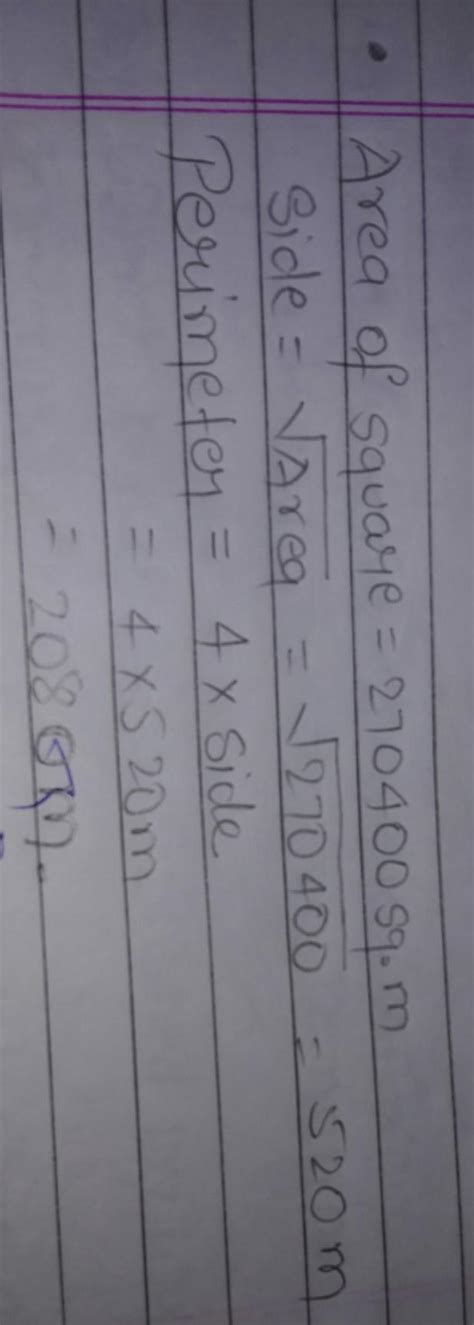 • Area of square = 270400 sq. m
Side = √Area = √270400 = 520 m
Perimeter = 4 × Side
= 4 × 520 m
= 2080 m.